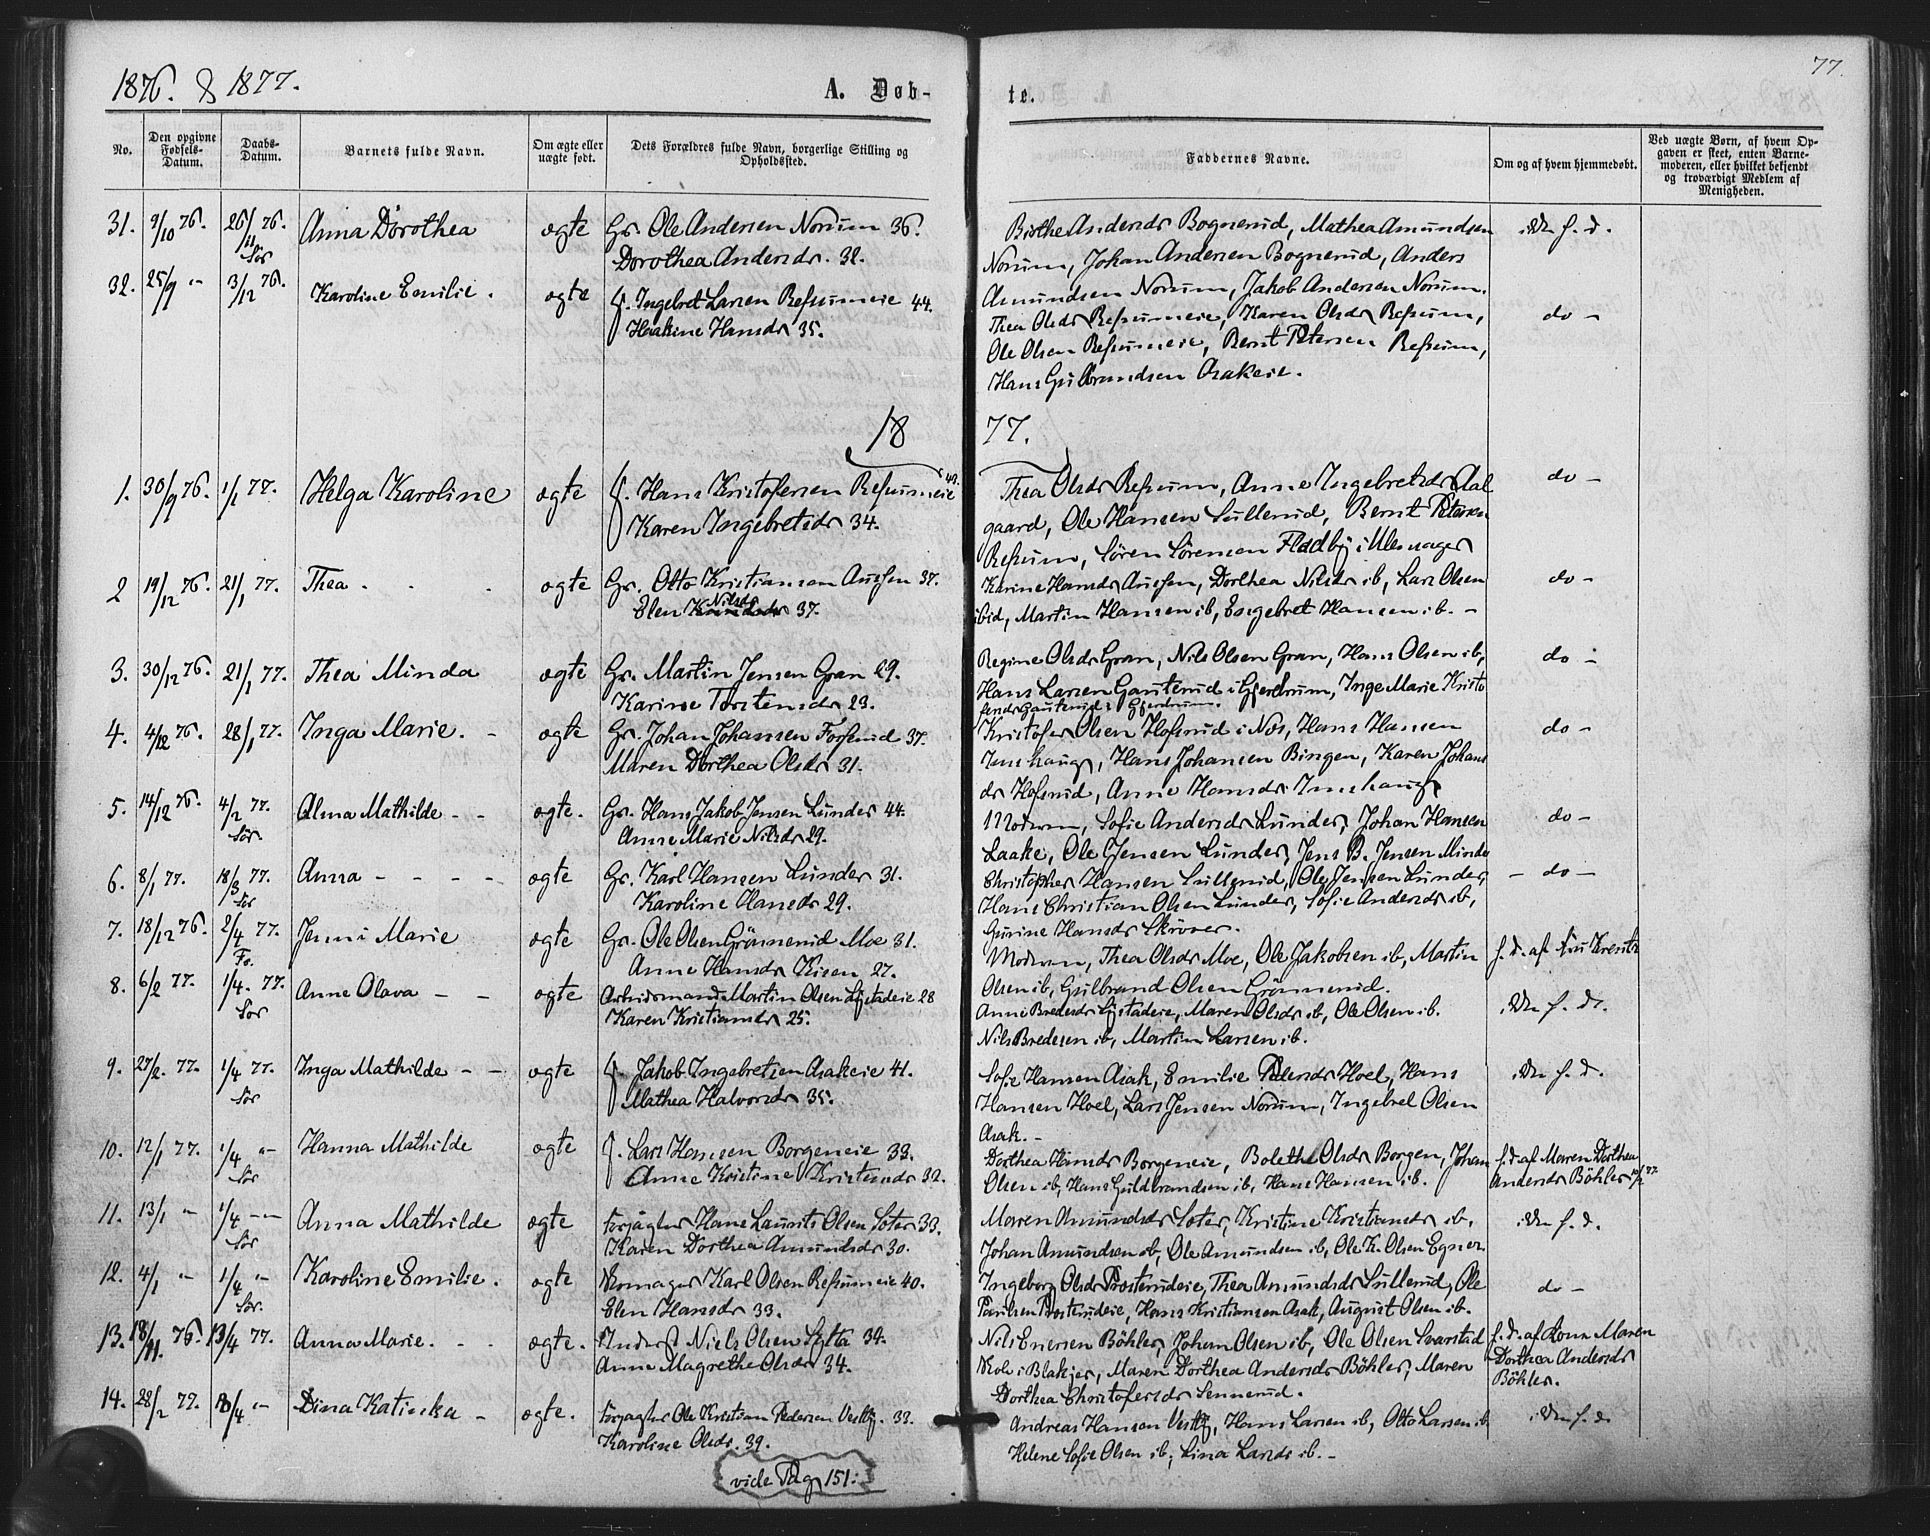 1876. & 1877.
A. Døb-
te.
77.
No.
Den opgivne Fødsels-Datum.
Daabs-Datum.
Barnets fulde Navn.
Om ægte eller uægte født.
Dets Forældres fulde Navn, borgerlige Stilling og Opholdssted.
Faddernes Navne.
Om og af hvem hjemmedøbt.
Ved uægte Børn, af hvem Opgaven er skeet, enten Barnemoderen, eller hvilket bekjendt og troværdigt Medlem af Menigheden.
31. 9/10 76. 26/11 76. Sør Anna Dorothea ægte Gr. Ole Andersen Norum 36.
Dorothea Andersdr. 32.
Birthe Andersdr Bognerud, Mathea Amundsen
Norum, Johan Andersen Bognerud, Anders
Amundsen Norum, Jakob Andersen Norum.
f. d.
32. 25/9 " 3/12 76. Karoline Emilie. ægte f. Ingebret Larsen Ressumeie 44.
Haakine Hansdr 35.
Thea Olsdr Ressumeie, Karen Olsdr Ressum,
Ole Olsen Ressumeie, Bernt Petersen Ressum,
Hans Gulbrandsen Asakeie.
do -
1877.
1. 30/9 76. 1/1 77. Helga Karoline ægte f. Hans Kristofersen Ressumeie 40.
Karen Ingebretsdr 34.
Thea Olsdr Ressum, Anne Ingebretsdr Aal
gaard, Ole Hansen Sullerud, Bernt Petersen
Ressum, Sören Sörensen Fladby i Ullensager
do -
2 19/12 76. 21/1 77. Thea . . . ægte Gr. Otto Kristiansen Aussen 37.
Elen Nilsdr 37.
Karine Hansdr Aussen, Dorthea Nilsdr ib, Lars Olsen
ibid, Martin Hansen ib, Engebret Hansen ib. -
do -
3. 30/12 76. 21/1 77. Thea Minda ægte Gr. Martin Jensen Gran 29.
Karine Torstensdr 23.
Regine Olsdr Gran, Nils Olsen Gran, Hans Olsen ib,
Hans Larsen Gauterud i Gjerdrum, Inge Marie Kristo
fersdr Gauterud i Gjerdrum.
do -
4. 4/12 76. 28/1 77. Inga Marie. - ægte Gr. Johan Johansen Forserud 37.
Maren Dorthea Olsdr 31.
Kristofer Olsen Hofsrud i Næs, Hans Hansen
Jenshaug, Hans Johansen Bingen, Karen Johans
dr Hofsrud, Anne Hansdr Jenshaug
do -
5. 14/12 76. 4/2 77. Sør. Alma Mathilde - - ægte. Gr. Hans Jakob Jensen Lunder 44.
Anne Marie Nilsdr 29.
Modren, Sofie Andersdr Lunder, Johan Hansen
Laake, Ole Jensen Lunder, Jens B. Jensen Minde
do -
6. 8/1 77. 18/3 77. Sør Anna - - - - ægte Gr. Karl Hansen Lunder 31.
Karoline Hansdr 29.
Christopher Hansen Sullerud, Ole Jensen Lunder,
Hans Christian Olsen Lunder, Sofie Andersdr ib,
Gurine Hansdr Skröver.
- do -
7. 18/12 76. 2/4 77. Fr. Jenni Marie ægte Gr. Ole Olsen Grönnerud Moe 31.
Anne Hansdr Kisen 27.
Modren, Thea Olsdr Moe, Ole Jakobsen ib, Martin
Olsen ib, Gulbrand Olsen Grönnerud.
f. d. af Fru Kreutz
8. 6/2 77. 1/4. 77. Sør Anne Olava - - ægte Arbeidsmand Martin Olsen Ligstadeie 28
Karen Kristiansdr 25.
Anne Bredesdr Ligstadeie, Maren Olsdr ib, Ole Olsen ib.
Nils Bredesen ib, Martin Larsen ib.
f. d.
9. 27/2. 77. 1/4 77. Sør Inga Mathilde - - ægte f. Jakob Ingebretsen Asakeie 41.
Mathea Halvorsdr 35.
Sofie Hansen Asak, Emilie Pedersdr Hoel, Hans
Hansen Hoel, Lars Jensen Norum, Ingebret Olsen
Asak. -
f. d.
10. 12/1 77. 1/4 " Sør Hanna Mathilde ægte f. Lars Hansen Borgeneie 33.
Anne Kristine Kristensdr 32.
Dorthea Hansdr Borgeneie, Bolethe Olsdr Borgen, Johan
Olsen ib, Hans Guldbrandsen ib, Hans Hansen ib.
f. d. af Maren Dorthea
Andersdr Böhler
11. 13/1 " 1/4 -- Sør Anna Mathilde ægte Forpagter Hans Laurits Olsen Soter 33.
Karen Dorthea Amundsdr 30.
Maren Amundsdr Soter, Kristine Kristiansdr ib,
Johan Amundsen ib, Ole Amundsen ib, Ole K. Olsen Egner.
f. d.
12. 4/1 " 1/4 " Sør. Karoline Emilie. ægte Skomager Karl Olsen Ressumeie 40.
Elen Hansdr 33.
Ingeborg Olsdr Prosterudeie, Thea Amundsdr Sullerud, Ole
Paulsen Prosterudeie, Hans Kristiansen Asak, August Olsen ib.
do -
13. 18/11. 76. 13/4 77. Anna Marie. . . ægte. Inderst Niels Olsen Sytta 34.
Anne Magrethe Olsdr 34.
Nils Enersen Böhler, Johan Olsen ib, Ole Olsen Svarstad
i Blakjer, Maren Dorthea Andersdr Böhler, Maren
Dorthea Christofersdr Sennerud.
f. d. af Kone Maren
Dorthea Andersdr
Böhler.
14. 28/2 77. 18/4 " Dina Katinka - ægte. Forpagter Ole Kristian Pedersen Vestby. 33.
Karoline Olsdr. 39.
Andreas Hansen Vestby, Hans Larsen ib, Otto Larsen ib
Helene Sofie Olsen ib, Lina Larsdr ib. -
f. d.
vide Pag 151: